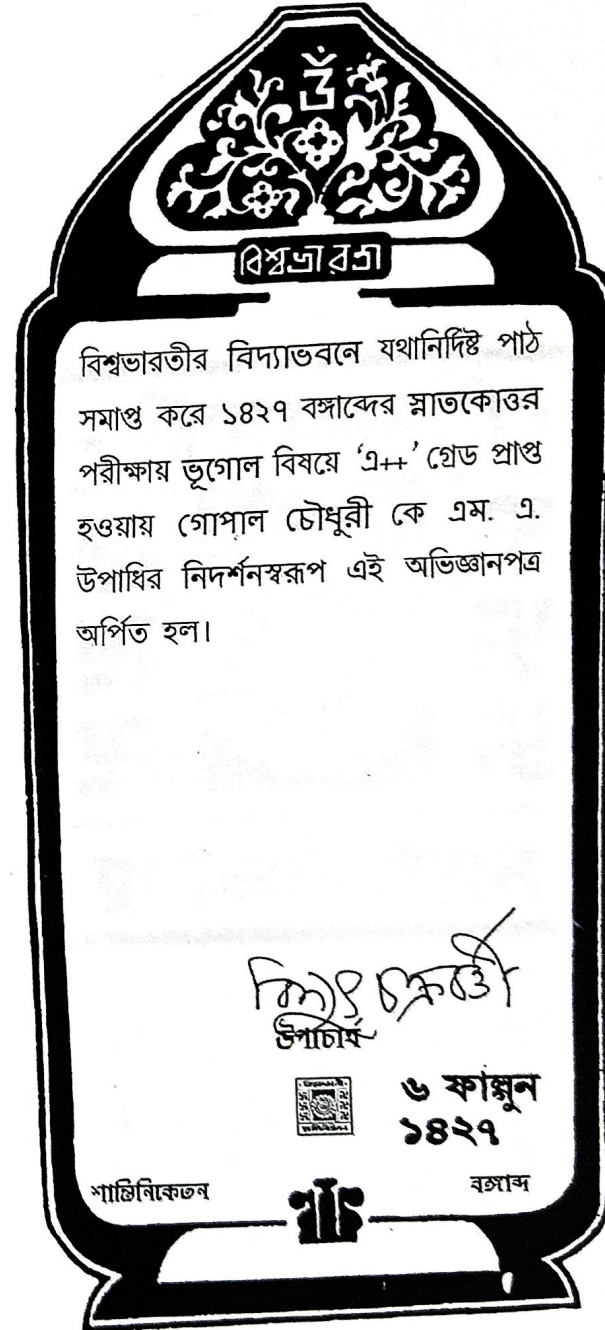 ওঁ
বিশ্বভারতী
বিশ্বভারতীর বিদ্যাভবনে যথানির্দিষ্ট পাঠ
সমাপ্ত করে ১৪২৭ বঙ্গাব্দের স্নাতকোত্তর
পরীক্ষায় ভূগোল বিষয়ে ‘এ++’ গ্রেড প্রাপ্ত
হওয়ায় গোপাল চৌধুরী কে এম. এ.
উপাধির নিদর্শনস্বরূপ এই অভিজ্ঞানপত্র
অর্পিত হল।
বিদ্যুৎ চক্রবর্তী
উপাচার্য
৬ ফাল্গুন
১৪২৭
শান্তিনিকেতন বঙ্গাব্দ